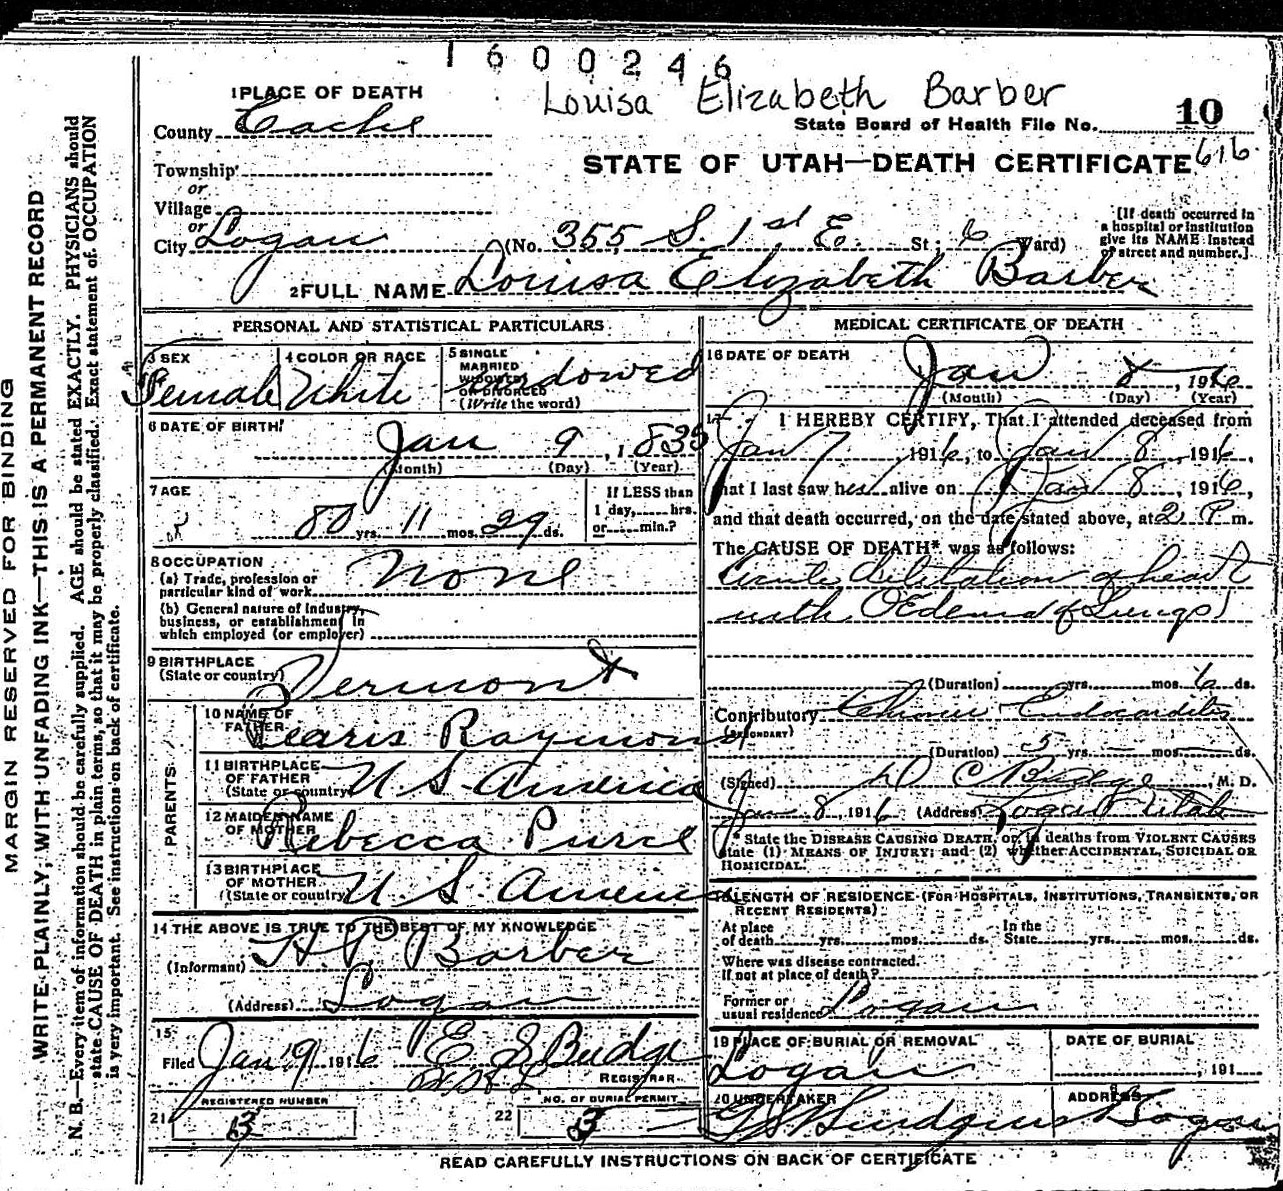 1600246
Louisa Elizabeth Barber
State Board of Health File No. 10
616
STATE OF UTAH—DEATH CERTIFICATE
1 PLACE OF DEATH
County Cache
Township
or
Village
or
City Logan (No. 355 S. 1st E. St; 6 Ward)
[If death occurred in
a hospital or institution
give its NAME instead
of street and number.]
2 FULL NAME Louisa Elizabeth Barber
PERSONAL AND STATISTICAL PARTICULARS
3 SEX Female
4 COLOR OR RACE White
5 SINGLE
MARRIED
WIDOWED
OR DIVORCED
(Write the word)
Widowed
6 DATE OF BIRTH
Jan 9, 1835
(Month) (Day) (Year)
7 AGE
80 yrs. 11 mos. 29 ds.
If LESS than
1 day, hrs.
or min.?
8 OCCUPATION
(a) Trade, profession or
particular kind of work None
(b) General nature of industry,
business, or establishment in
which employed (or employer)
9 BIRTHPLACE
(State or country) Vermont
PARENTS
10 NAME OF
FATHER Pearis Raymond
11 BIRTHPLACE
OF FATHER
(State or country) U S America
12 MAIDEN NAME
OF MOTHER Rebecca
13 BIRTHPLACE
OF MOTHER
(State or country) U S America
14 THE ABOVE IS TRUE TO THE BEST OF MY KNOWLEDGE
(Informant) H P Barber
(Address) Logan
15
Filed Jan 9 1916 E S Budge
REGISTRAR
21 REGISTERED NUMBER
3
22 NO. OF BURIAL PERMIT
3
MEDICAL CERTIFICATE OF DEATH
16 DATE OF DEATH
Jan 8, 1916
(Month) (Day) (Year)
17 I HEREBY CERTIFY, That I attended deceased from
Jan 7, 1916, to Jan 8, 1916,
that I last saw her alive on Jan 8, 1916,
and that death occurred, on the date stated above, at 2 P m.
The CAUSE OF DEATH* was as follows:
Acute dilitation of heart
with OEdema of Lungs
(Duration) yrs. mos. ds.
Contributory Chronic Endocarditis
(SECONDARY)
(Duration) 5 yrs. — mos. — ds.
(Signed) D C Budge, M. D.
Jan 8, 1916 (Address) Logan Utah
* State the DISEASE CAUSING DEATH, or, in deaths from VIOLENT CAUSES
state (1) MEANS OF INJURY; and (2) whether ACCIDENTAL, SUICIDAL OR
HOMICIDAL.
18 LENGTH OF RESIDENCE (FOR HOSPITALS, INSTITUTIONS, TRANSIENTS, OR
RECENT RESIDENTS)
At place
of death yrs. mos. ds.
In the
State yrs. mos. ds.
Where was disease contracted
If not at place of death?
Former or
usual residence Logan
19 PLACE OF BURIAL OR REMOVAL
Logan
DATE OF BURIAL
, 191
20 UNDERTAKER
ADDRESS
Logan
READ CAREFULLY INSTRUCTIONS ON BACK OF CERTIFICATE
MARGIN RESERVED FOR BINDING
WRITE PLAINLY, WITH UNFADING INK—THIS IS A PERMANENT RECORD
N. B.—Every item of information should be carefully supplied. AGE should be stated EXACTLY. PHYSICIANS should
state CAUSE OF DEATH in plain terms, so that it may be properly classified. Exact statement of OCCUPATION
is very important. See instructions on back of certificate.